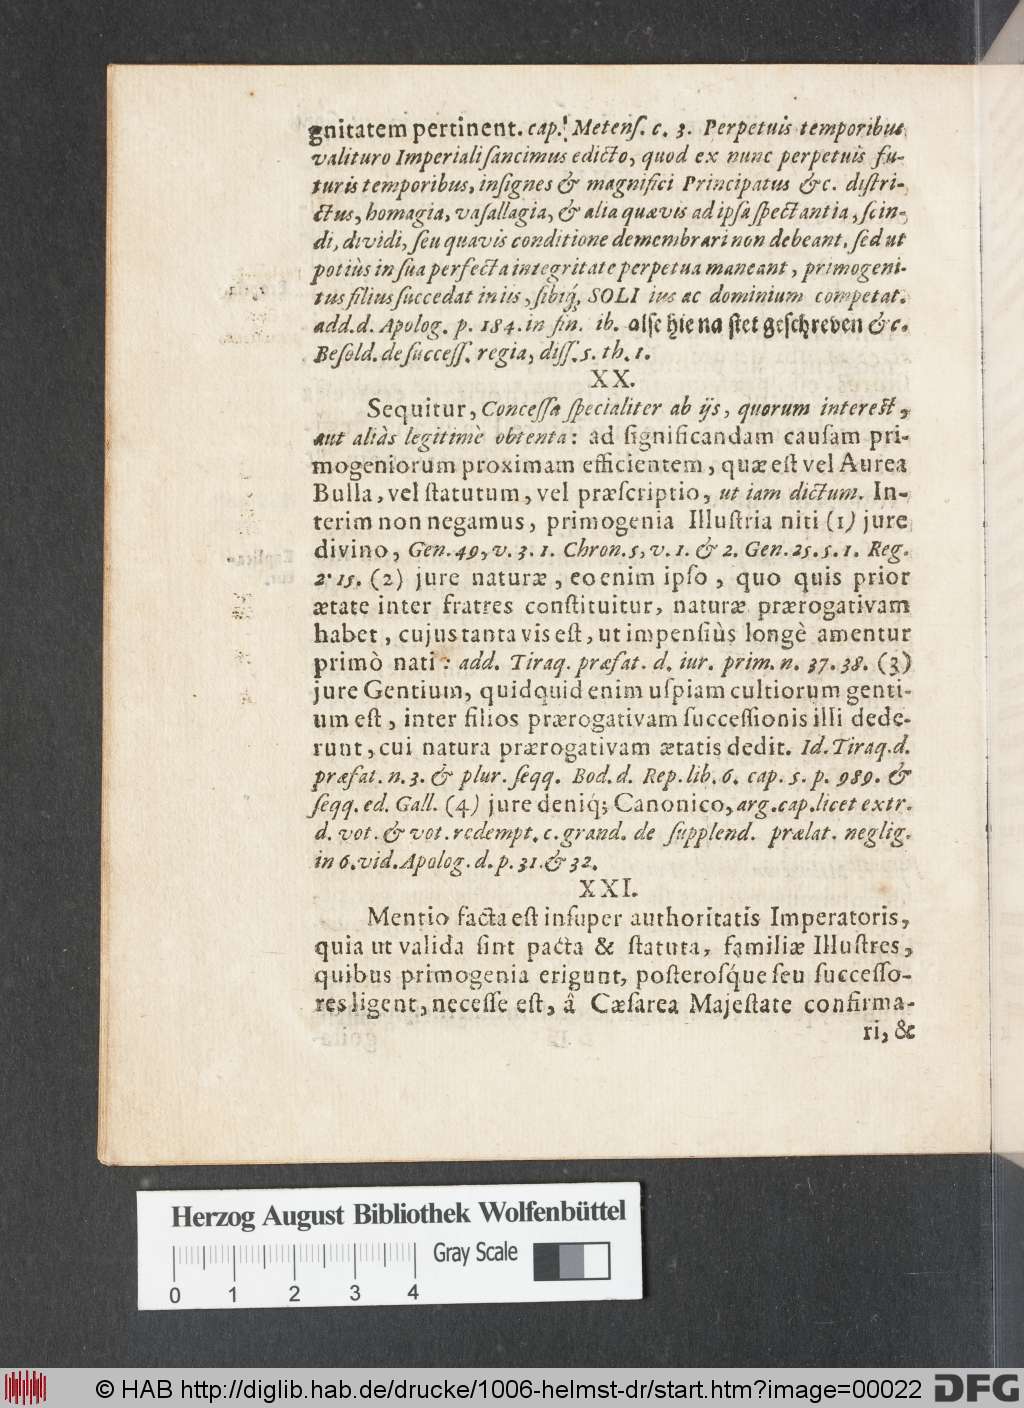 gnitatem pertinent. cap. Metenſ. c. 3. Perpetuis temporibus
valituro Imperiali ſancimus edicto, quod ex nunc perpetuis fu-
turis temporibus, inſignes & magnifici Principatus &c. diſtri-
ctus, homagia, vaſallagia, & alia quævis ad ipſa ſpectantia, ſcin-
di, dividi, ſeu quavis conditione demembrari non debeant, ſed ut
potiùs in ſua perfecta integritate perpetua maneant, primogeni-
tus filius ſuccedat in iis, ſibiq́, SOLI ius ac dominium competat.
add. d. Apolog. p. 184. in fin. ib. alſe hie na ſtet geſchreven &c.
Beſold. de ſucceſſ. regia, diſſ. 5. th. 1.
XX.
Sequitur, Conceſſa ſpecialiter ab ijs, quorum intereſt,
aut aliàs legitimè obtenta: ad ſignificandam cauſam pri-
mogeniorum proximam efficientem, quæ eſt vel Aurea
Bulla, vel ſtatutum, vel præſcriptio, ut iam dictum. In-
terim non negamus, primogenia Illuſtria niti (1) jure
divino, Gen. 49, v. 3. 1. Chron. 5, v. 1. & 2. Gen. 25. 5. 1. Reg.
2. 15. (2) jure naturæ, eo enim ipſo, quo quis prior
ætate inter fratres conſtituitur, naturæ prærogativam
habet, cujus tanta vis eſt, ut impenſiùs longè amentur
primò nati: add. Tiraq. præfat. d. iur. prim. n. 37. 38. (3)
jure Gentium, quidquid enim uſpiam cultiorum genti-
um eſt, inter filios prærogativam ſucceſſionis illi dede-
runt, cui natura prærogativam ætatis dedit. Id. Tiraq. d.
præfat. n. 3. & plur. ſeqq. Bod. d. Rep. lib. 6. cap. 5. p. 989. &
ſeqq. ed. Gall. (4) jure deniq́; Canonico, arg. cap. licet extr.
d. vot. & vot. redempt. c. grand. de ſupplend. prælat. neglig.
in 6. vid. Apolog. d. p. 31. & 32.
XXI.
Mentio facta eſt inſuper authoritatis Imperatoris,
quia ut valida ſint pacta & ſtatuta, familiæ Illuſtres,
quibus primogenia erigunt, poſteroſq́ue ſeu ſucceſſo-
res ligent, neceſſe eſt, â Cæſarea Majeſtate confirma-
ri, &
Herzog August Bibliothek Wolfenbüttel
Gray Scale
0 1 2 3 4
© HAB http://diglib.hab.de/drucke/1006-helmst-dr/start.htm?image=00022
DFG